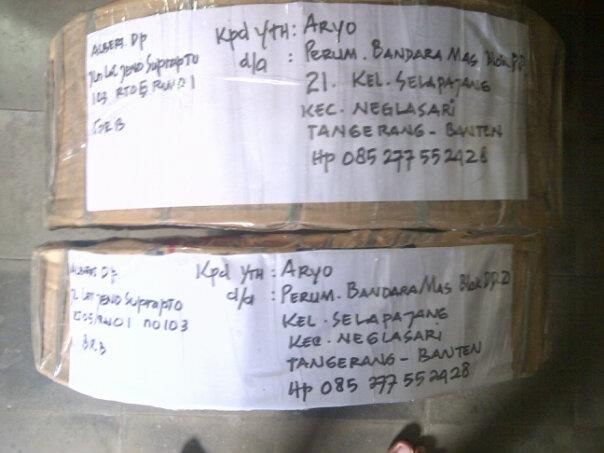 ALBERT. DP
Jln Let JEND Suprapto
103 RT05 RW01
BRB
Kpd YTH : ARYO
d/a : PERUM. BANDARA MAS Blok DD.
21. KEL. SELAPAJANG
KEC. NEGLASARI
TANGERANG - BANTEN
Hp 085 277 552428
ALBERT. DP
Jl Let JEND Suprapto
RT05/RW01 NO103
BRB
Kpd YTH : ARYO
d/a : PERUM. BANDARA MAS Blok DD.21
KEL. SELAPAJANG
KEC. NEGLASARI
TANGERANG - BANTEN
Hp 085 277 552428